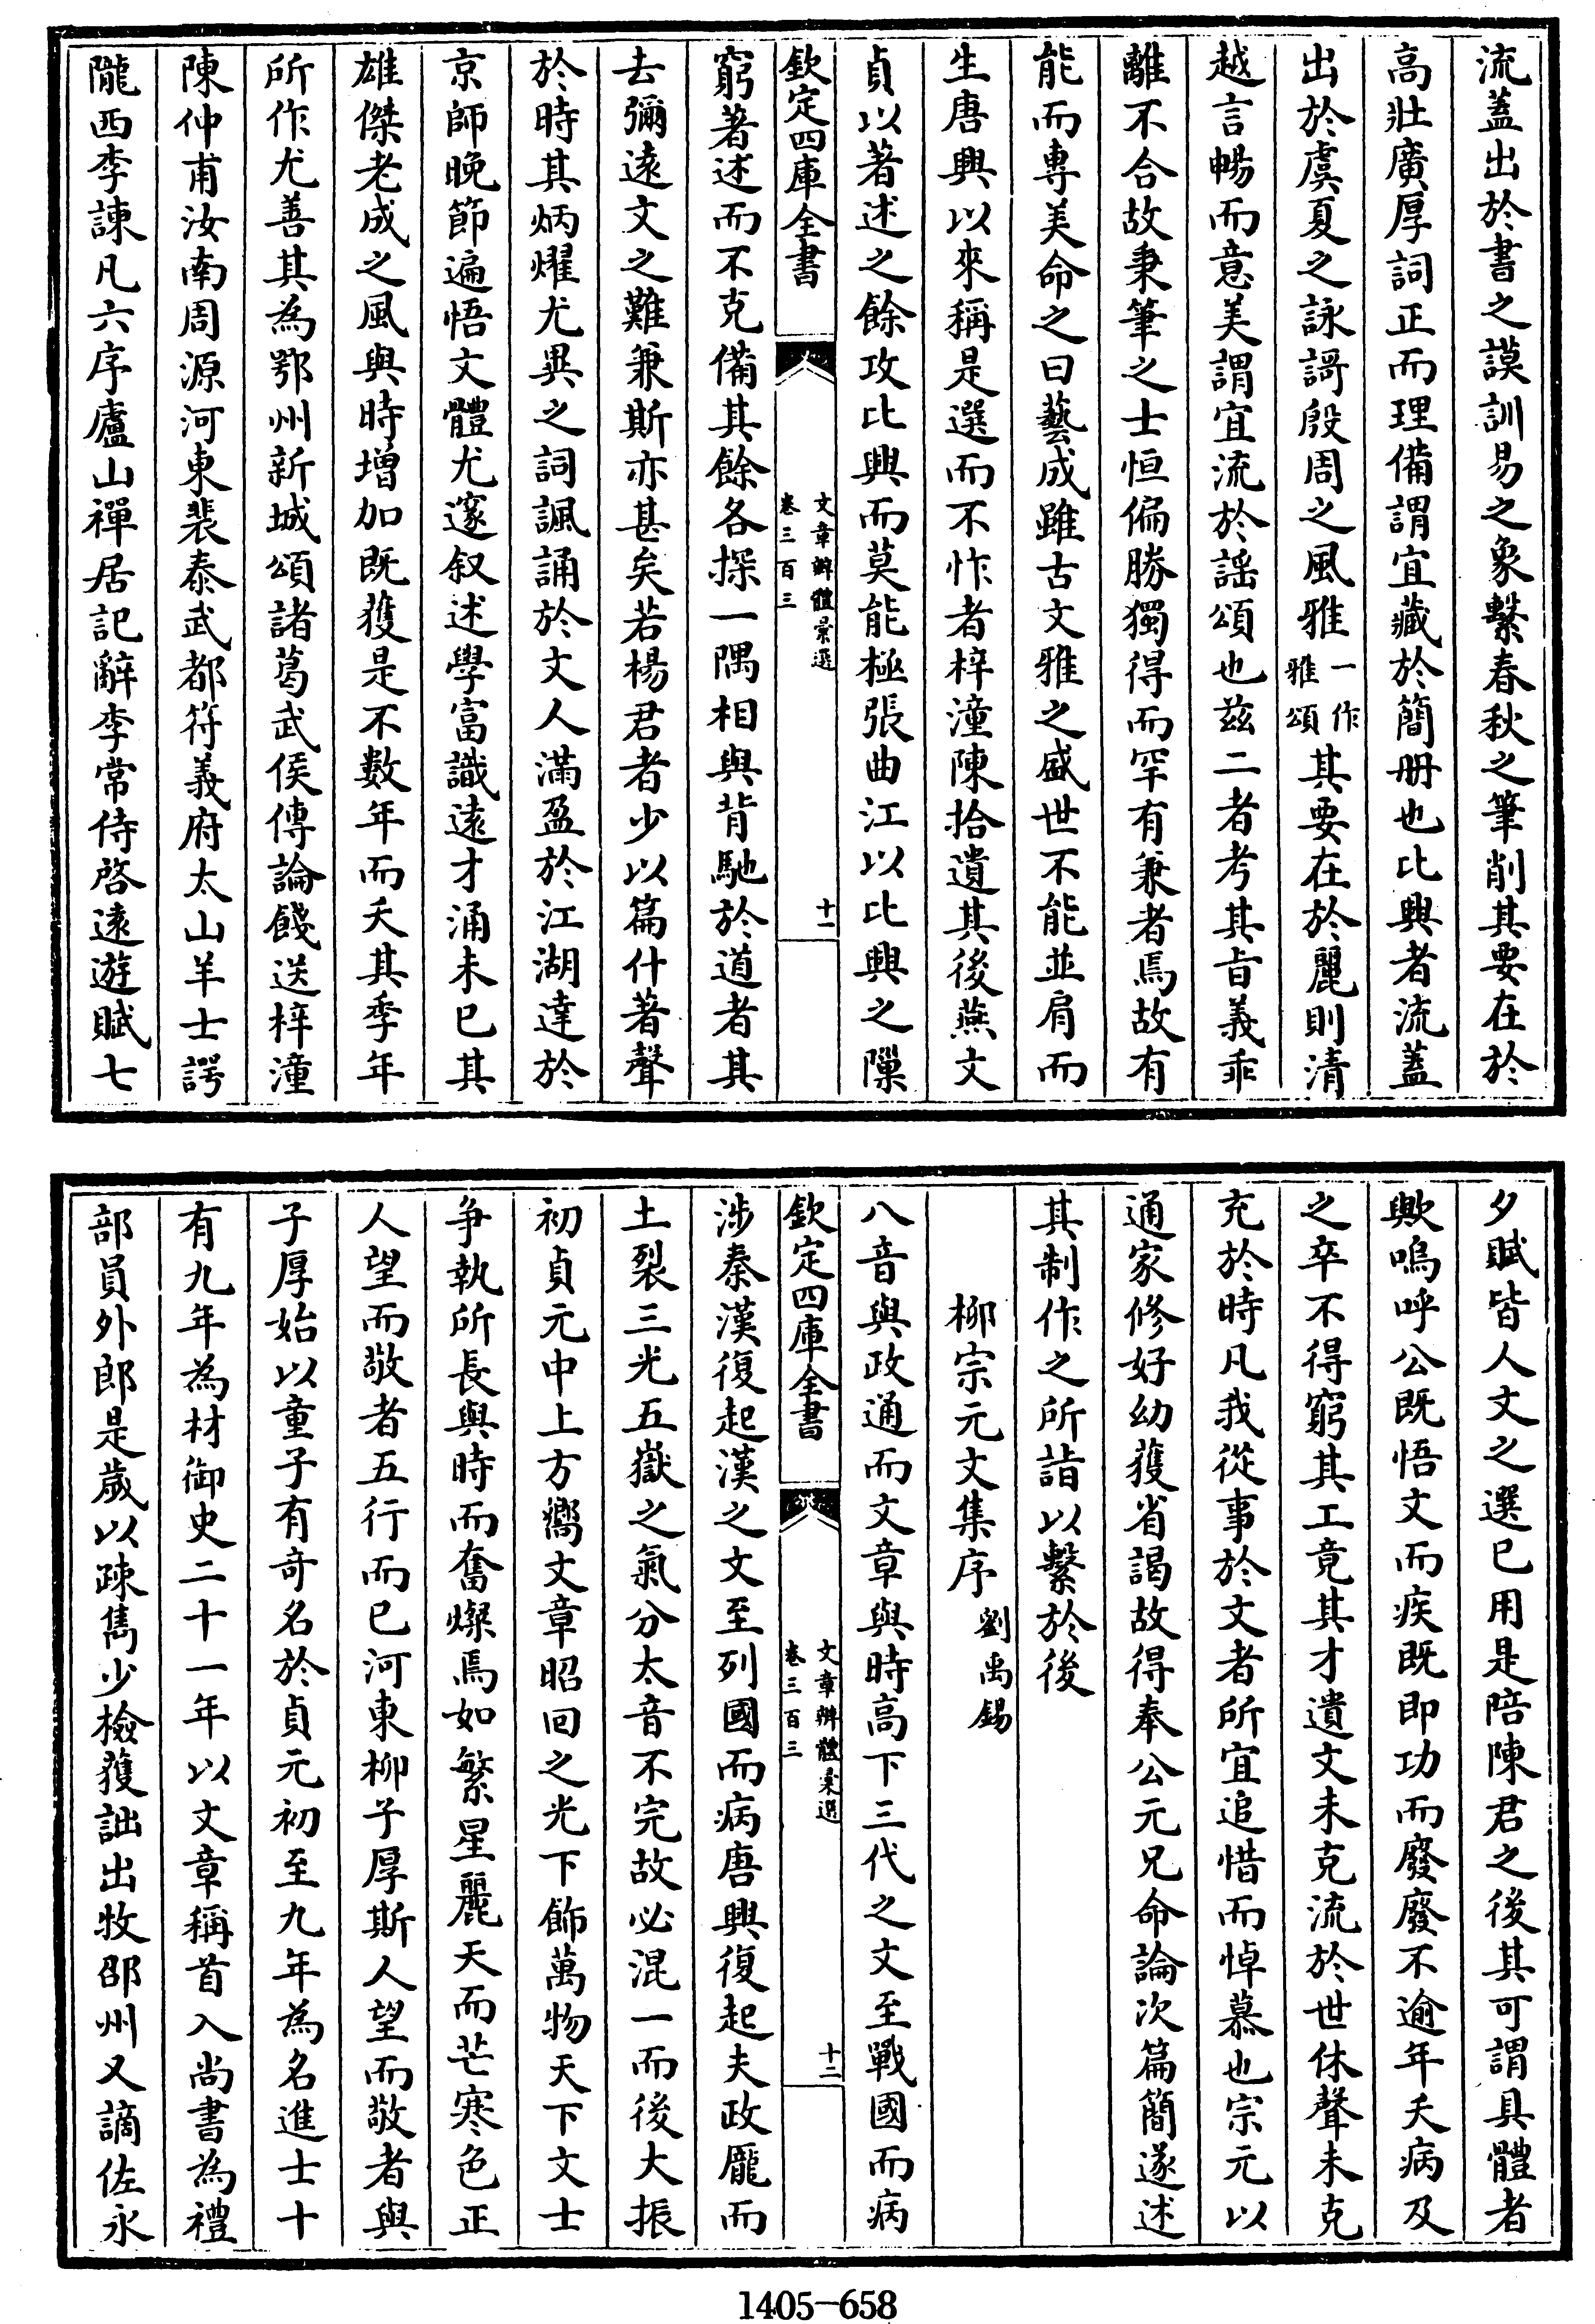 流蓋出於書之謨訓易之象繫春秋之筆削其要在於
高壯廣厚詞正而理備謂宜藏於簡册也比興者流蓋
出於虞夏之詠謌殷周之風雅一作雅頌其要在於麗則清
越言暢而意美謂宜流於謡頌也兹二者考其㫖義乖
離不合故秉筆之士恒偏勝獨得而罕有兼者焉故有
能而專美命之曰藝成雖古文雅之盛世不能並肩而
生唐興以來稱是選而不怍者梓潼陳拾遺其後燕文
貞以著述之餘攻比興而莫能極張曲江以比興之隟
欽定四庫全書
文章辨體彙選
卷三百三
十一
窮著述而不克備其餘各探一隅相與背馳於道者其
去彌遠文之難兼斯亦甚矣若楊君者少以篇什著聲
於時其炳燿尤異之詞諷誦於文人滿盈於江湖達於
京師晚節遍悟文體尤邃叙述學富識遠才涌未已其
雄傑老成之風與時增加既獲是不數年而夭其季年
所作尤善其為鄂州新城頌諸葛武侯傳論餞送梓潼
陳仲甫汝南周源河東裴泰武都符義府太山羊士諤
隴西李諫凡六序廬山禪居記辭李常侍啓遠遊賦七
夕賦皆人文之選已用是陪陳君之後其可謂具體者
歟嗚呼公既悟文而疾既即功而廢廢不逾年夭病及
之卒不得窮其工竟其才遺文未克流於世休聲未克
充於時凡我從事於文者所宜追惜而悼慕也宗元以
通家修好幼獲省謁故得奉公元兄命論次篇簡遂述
其制作之所詣以繫於後
柳宗元文集序劉禹錫
八音與政通而文章與時高下三代之文至戰國而病
欽定四庫全書
文章辨體彙選
卷三百三
十二
涉秦漢復起漢之文至列國而病唐興復起夫政龐而
土裂三光五嶽之氣分太音不完故必混一而後大振
初貞元中上方嚮文章昭回之光下飾萬物天下文士
争執所長與時而奮燦焉如繁星麗天而芒寒色正
人望而敬者五行而已河東柳子厚斯人望而敬者與
子厚始以童子有奇名於貞元初至九年為名進士十
有九年為材御史二十一年以文章稱首入尚書為禮
部員外郎是歲以疎雋少檢獲訕出牧邵州又謫佐永
1405-658